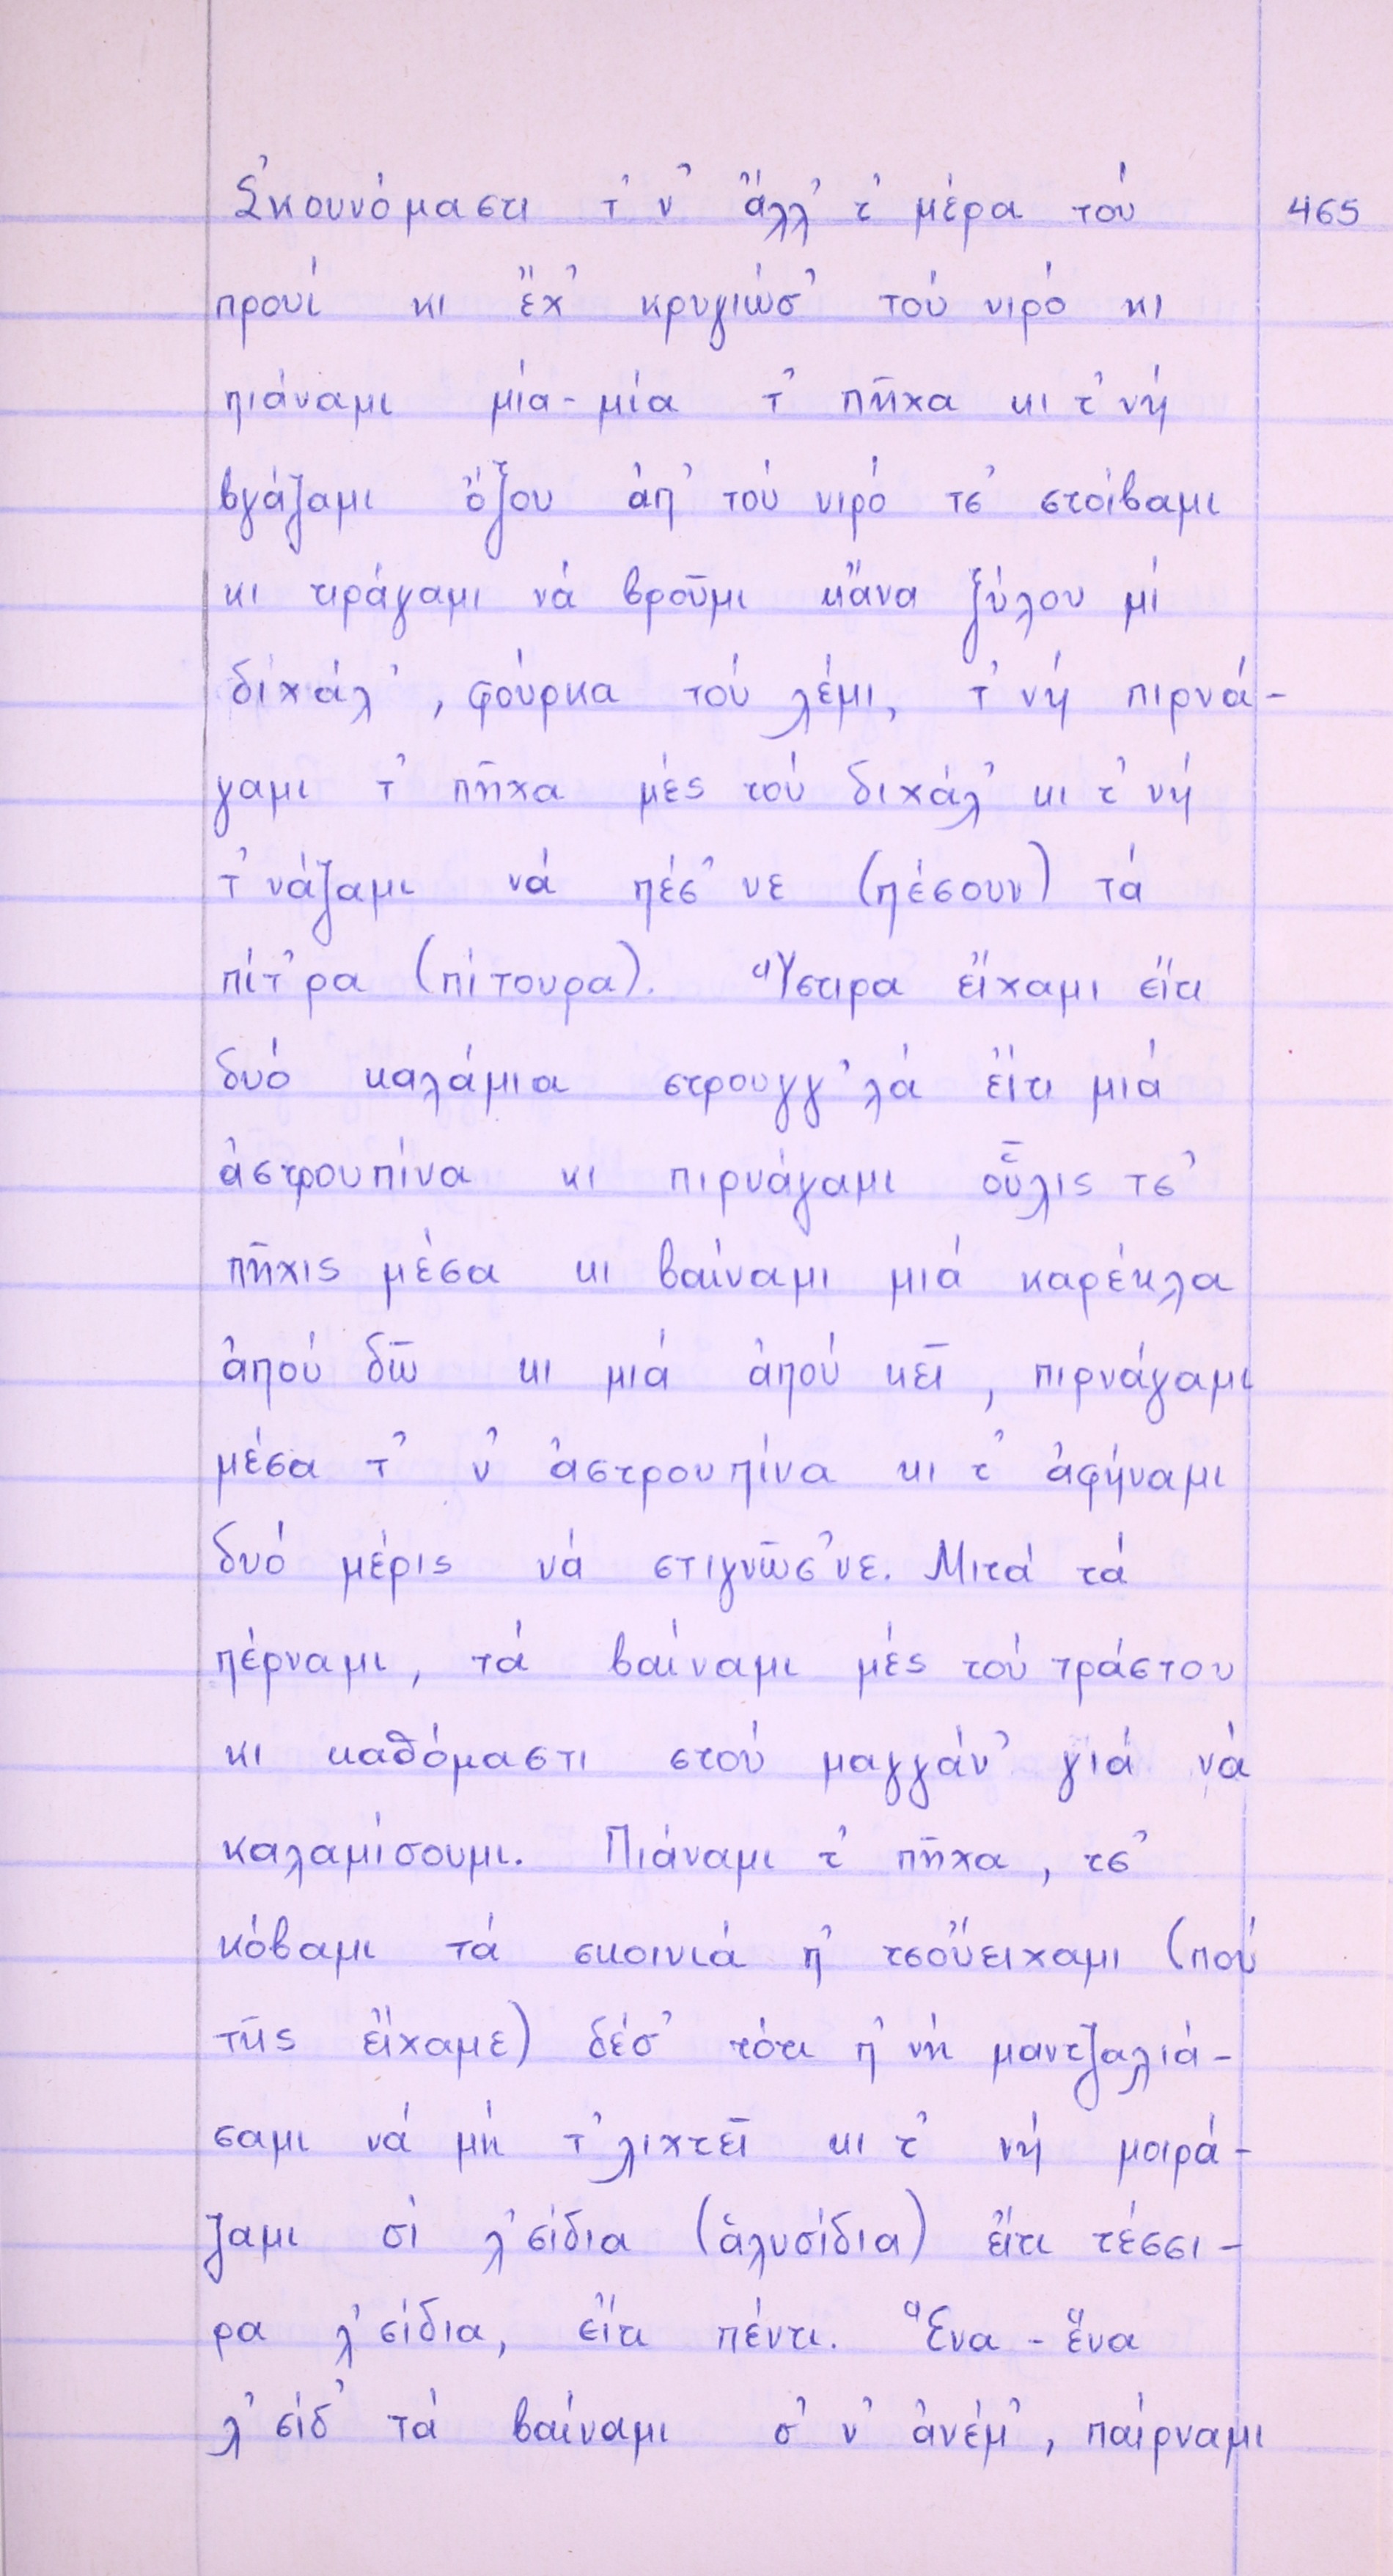 Σ'κουνόμαστι τ' ν' ἄλλ' τ' μέρα τού 465
προυί κι ἔχ' κρυγιώσ' τού νιρό κι
πιάναμι μία-μία τ' πῆχα κι τ' νή
βγάζαμι ὄξου ἀπ' τού νιρό τσ' στοίβαμι
κι τιράγαμι νά βροῦμι κἄνα ξύλου μί
διχάλ', φούρκα τού λέμι, τ' νή πιρνά-
γαμι τ' πῆχα μές τού διχάλ' κι τ' νή
τ'νάζαμι νά πέσ'νε (πέσουν) τά
πίτ'ρα (πίτουρα). Ὕστιρα εἴχαμι εἴτι
δυό καλάμια στρουγγ'λά εἴτι μιά
ἀστρουπίνα κι πιρνάγαμι οὗλις τσ'
πῆχις μέσα κι βαίναμι μιά καρέκλα
ἀπού δῶ κι μιά ἀπού κεῖ, πιρνάγαμι
μέσα τ' ν' ἀστρουπίνα κι τ' ἀφήναμι
δυό μέρις νά στιγνῶσ'νε. Μιτά τά
πέρναμι, τά βαίναμι μές τού τράστου
κι καθόμαστι στού μαγγάν' γιά νά
καλαμίσουμι. Πιάναμι τ' πῆχα, τσ'
κόβαμι τά σκοινιά π' τσοὔειχαμι (πού
τῆς εἴχαμε) δέσ' τότι π' νή μαντζαλιά-
σαμι νά μή τ'λιχτεῖ κι τ' νή μοιρά-
ζαμι σί λ'σίδια (ἁλυσίδια) εἴτι τέσσι-
ρα λ'σίδια, εἴτι πέντι. Ἕνα-ἕνα
λ'σίδ' τά βαίναμι σ' ν' ἀνέμ', παίρναμι